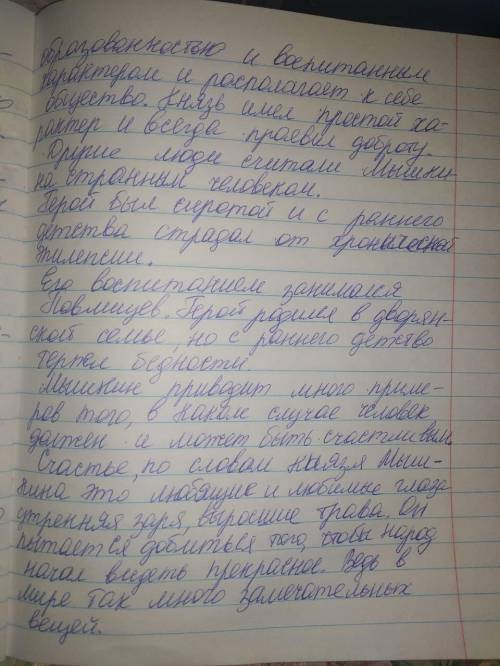 образованностью и воспитанным
характером и распологает к себе
общество. Князь имел простой ха-
рактер и всегда проевил доброту.
Другие люди считали Мышки-
на странным человеком.
Герой был сиротой и с раннего
детства страдал от хронической
эпилепсии.
Его воспитанием занимался
Павлищев. Герой родился в дворян-
ской семье, но с раннего детство
терпел бедности.
Мышкин приводит много приме-
ров того, в каком случае человек
должен и может быть счастливым.
Счастье, по словам князя Мыш-
кина это любящие и любимые глаза
утренняя заря, выросшие трава. Он
пытается добиться того, чтобы народ
начал видеть прекрасное. Ведь в
мире так много замечательных
вещей.